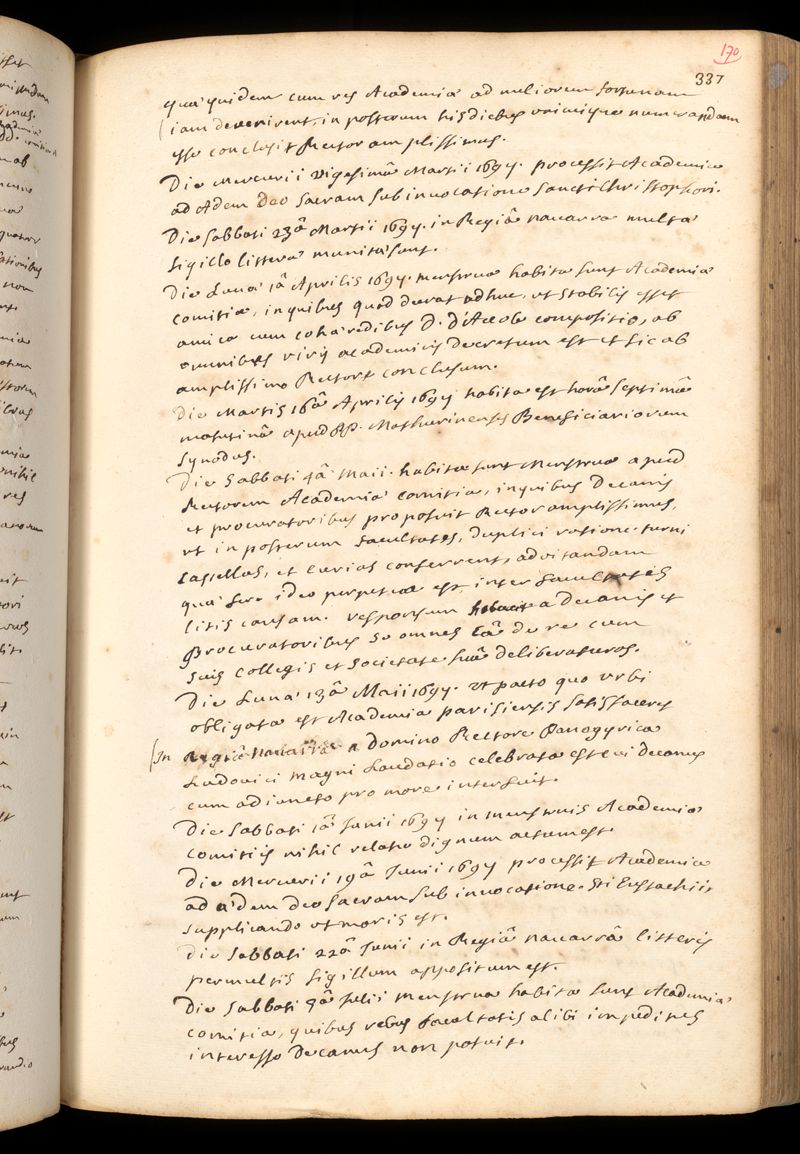 170
337
quæ quidem cum res Academiæ ad meliorem fortunam
iam devenirent, in posterum his diebus numerandam
esse conclusit Rector amplissimus.
Die Mercurii vigesimâ Martii 1697. processit Academia
ad Ædem deo Sacram sub invocatione Sancti Christophori.
Die Sabbati 23â Martii 1697. in Regiâ navarra multæ
sigillo litteræ munitæ sunt.
Die Lunæ 1â Aprilis 1697. menstrua habita sunt Academiæ
comitia, in quibus quod deerat adhuc, ut stabilis esset
amica cum cohæredibus D. compositio, ab
omnibus viris academicis decretum est et sic ab
amplissimo Rectore conclusum.
Die Martis 16â Aprilis 1697 habita est horâ septimâ
matutinâ apud RP. Mathurinenses Beneficiariorum
Synodus.
Die Sabbati 4â Maii. habita sunt Menstrua apud
Rectorem Academiæ comitia, in quibus Decanis
et procuratoribus proposuit Rector amplissimus,
ut in posterum facultates, duplici ratione turni
capellas, et curias conferrent, ad vitandam
quæ fere ideo perpetua est inter facultates
litis causam. responsum a Decanis et
Procuratoribus se omnes eâ de re cum
suis Collegis et societate suâ deliberaturos.
Die Lunæ 13â Maii 1697. ut pacto quo urbi
obligata est Academia parisiensis satisfaceret
In Regiâ Navarrâ a Domino Rectore Panegyrica
Ludovici magni Laudatio celebrata est cui decanus
cum adiuncto pro more interfuit.
Die Sabbati 1â Junii 1697 in menstruis Academiæ
comitiis nihil relatu dignum actum est.
Die Mercurii 19â Junii 1697 processit Academia
ad ædem deo Sacram sub invocatione Sti Eustachii,
supplicando ut moris est.
die Sabbati 22â Junii in Regiâ navarrâ litteris
permultis sigillum appositum est.
Die Sabbati 6â Julii menstrua habita sunt Academiæ
comitia, quibus rebus facultatis alibi impeditus
interesse Decanus non potuit.